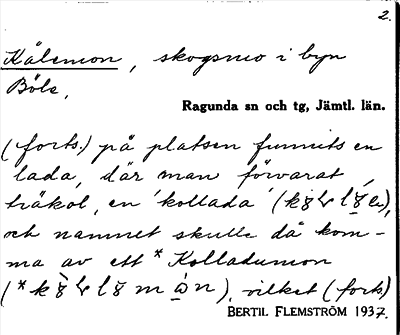 2.
Kålsmon, skogsmo i byn
Böle,
Ragunda sn och tg, Jämtl. län.
(forts.) på platsen funnits en
lada, där man förvarat
träkol, en 'kollada'
och namnet skulle då kom-
ma av ett *Kolladumon
vilket (forts)
BERTIL FLEMSTRÖM 1937.